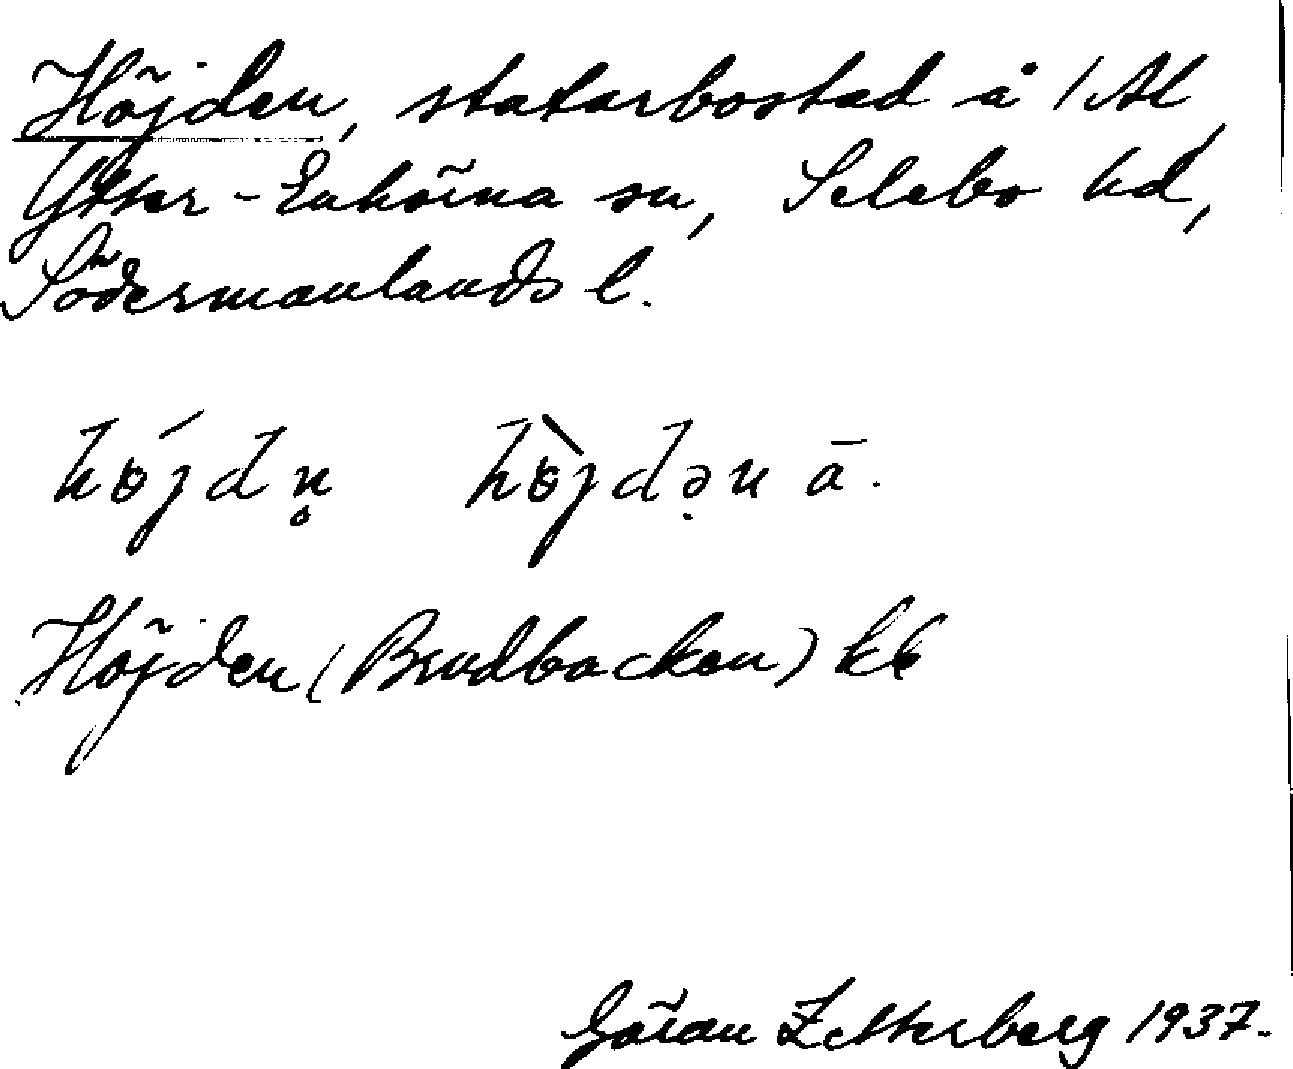 Höjden, statarbostad å 1 Al
Ytter-Enhörna sn, Selebo hd,
Södermanlands l.
hɵ́jdn̥ hɵ̀jdə̣n ā.
Höjden (Brudbacken) kb
Göran Zetterberg 1937.